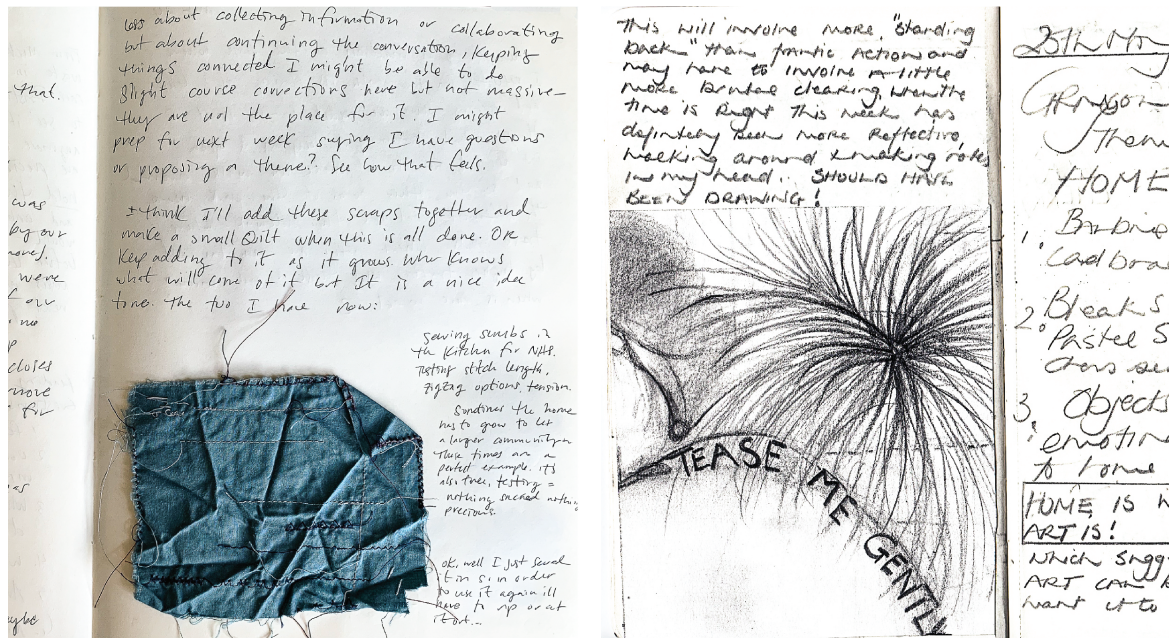 that.
was
by our
were
our
no
closes
more
for
as
maybe
less about collecting information or collaborating
but about continuing the conversation, keeping
things connected I might be able to do
slight cource corrections here but not massive—
they are not the place for it. I might
prep for next week saying I have questions
or proposing a theme? See how that feels.
I think I'll add these scraps together and
make a small Quilt when this is all done. OR
keep adding to it as it grows. Who knows
what will come of it but It is a nice idea
tome. the two I have now:
sewing scrubs in
the Kitchen for NHS.
Testing stitch length,
zigzag options, tension.
Sometimes the home
has to grow to let
a larger community in
these times are a
perfect example. it's
also free, testing =
nothing sacred nothing
precious.
ok, well I just sewed
it in so in order
to use it again ill
have to rip or at
start...
This will involve more "standing
back" than frantic action and
may have to involve a little
more brutal clearing, when the
time is Right This week has
definitely been more Reflective,
walking around & making notes
in my head.. SHOULD HAVE
BEEN DRAWING!
TEASE ME GENTLY
25th May
Grayson
Theme
HOME
1. Barbie
Cad boar
2. Bleak S
Pastel S
3. Objects
emotin
to home
HOME IS W
ART IS!
which sugg
ART CAN
want it to